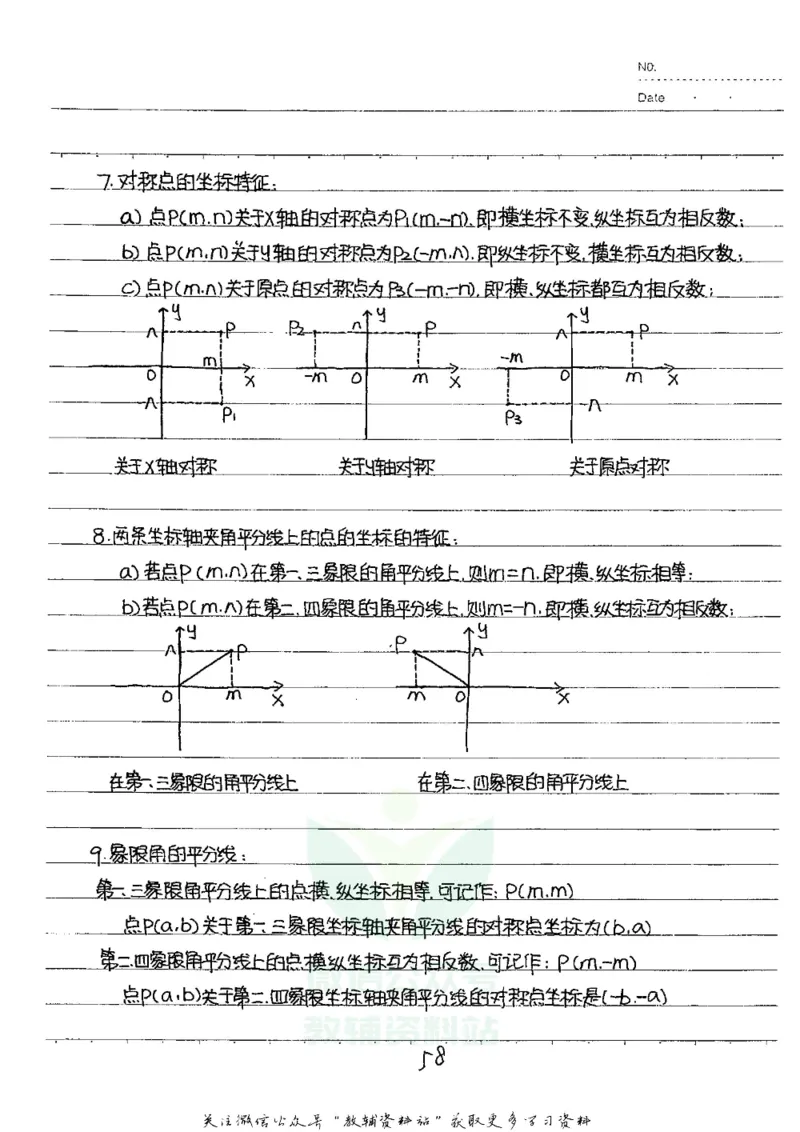 NO.
Date
7.对称点的坐标特征:
a) 点P(m,n)关于X轴的对称点为P1(m,-n),即横坐标不变,纵坐标互为相反数;
b) 点P(m,n)关于y轴的对称点为P2(-m,n),即纵坐标不变,横坐标互为相反数;
c) 点P(m,n)关于原点的对称点为P3(-m,-n),即横、纵坐标都互为相反数;
y P2 y y
n P n P n P
m -m
O X -m O m X O m X
-n P1 P3 -n
关于X轴对称 关于y轴对称 关于原点对称
8.两条坐标轴夹角平分线上的点的坐标的特征:
a)若点P(m,n)在第一、三象限的角平分线上,则m=n,即横、纵坐标相等;
b)若点P(m,n)在第二、四象限的角平分线上,则m=-n,即横、纵坐标互为相反数;
y y
n P P n
O m X m O X
在第一、三象限的角平分线上 在第二、四象限的角平分线上
9.象限角的平分线:
第一、三象限角平分线上的点横、纵坐标相等,可记作:P(m,m)
点P(a,b)关于第一、三象限坐标轴夹角平分线的对称点坐标为(b,a)
第二、四象限角平分线上的点横纵坐标互为相反数,可记作:P(m,-m)
点P(a,b)关于第二、四象限坐标轴夹角平分线的对称点坐标是(-b,-a)
微信公众号
教辅资料站
58
关注微信公众号"教辅资料站"获取更多学习资料